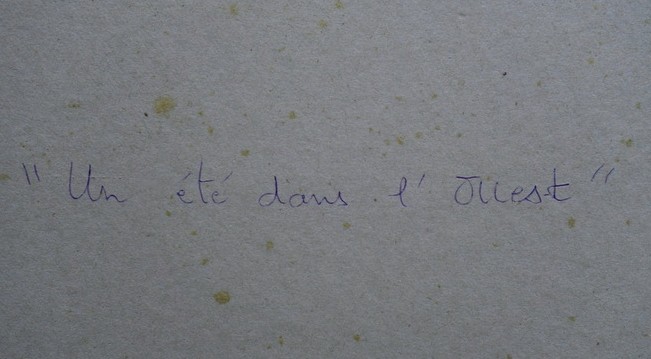 "Un été dans l'Ouest"